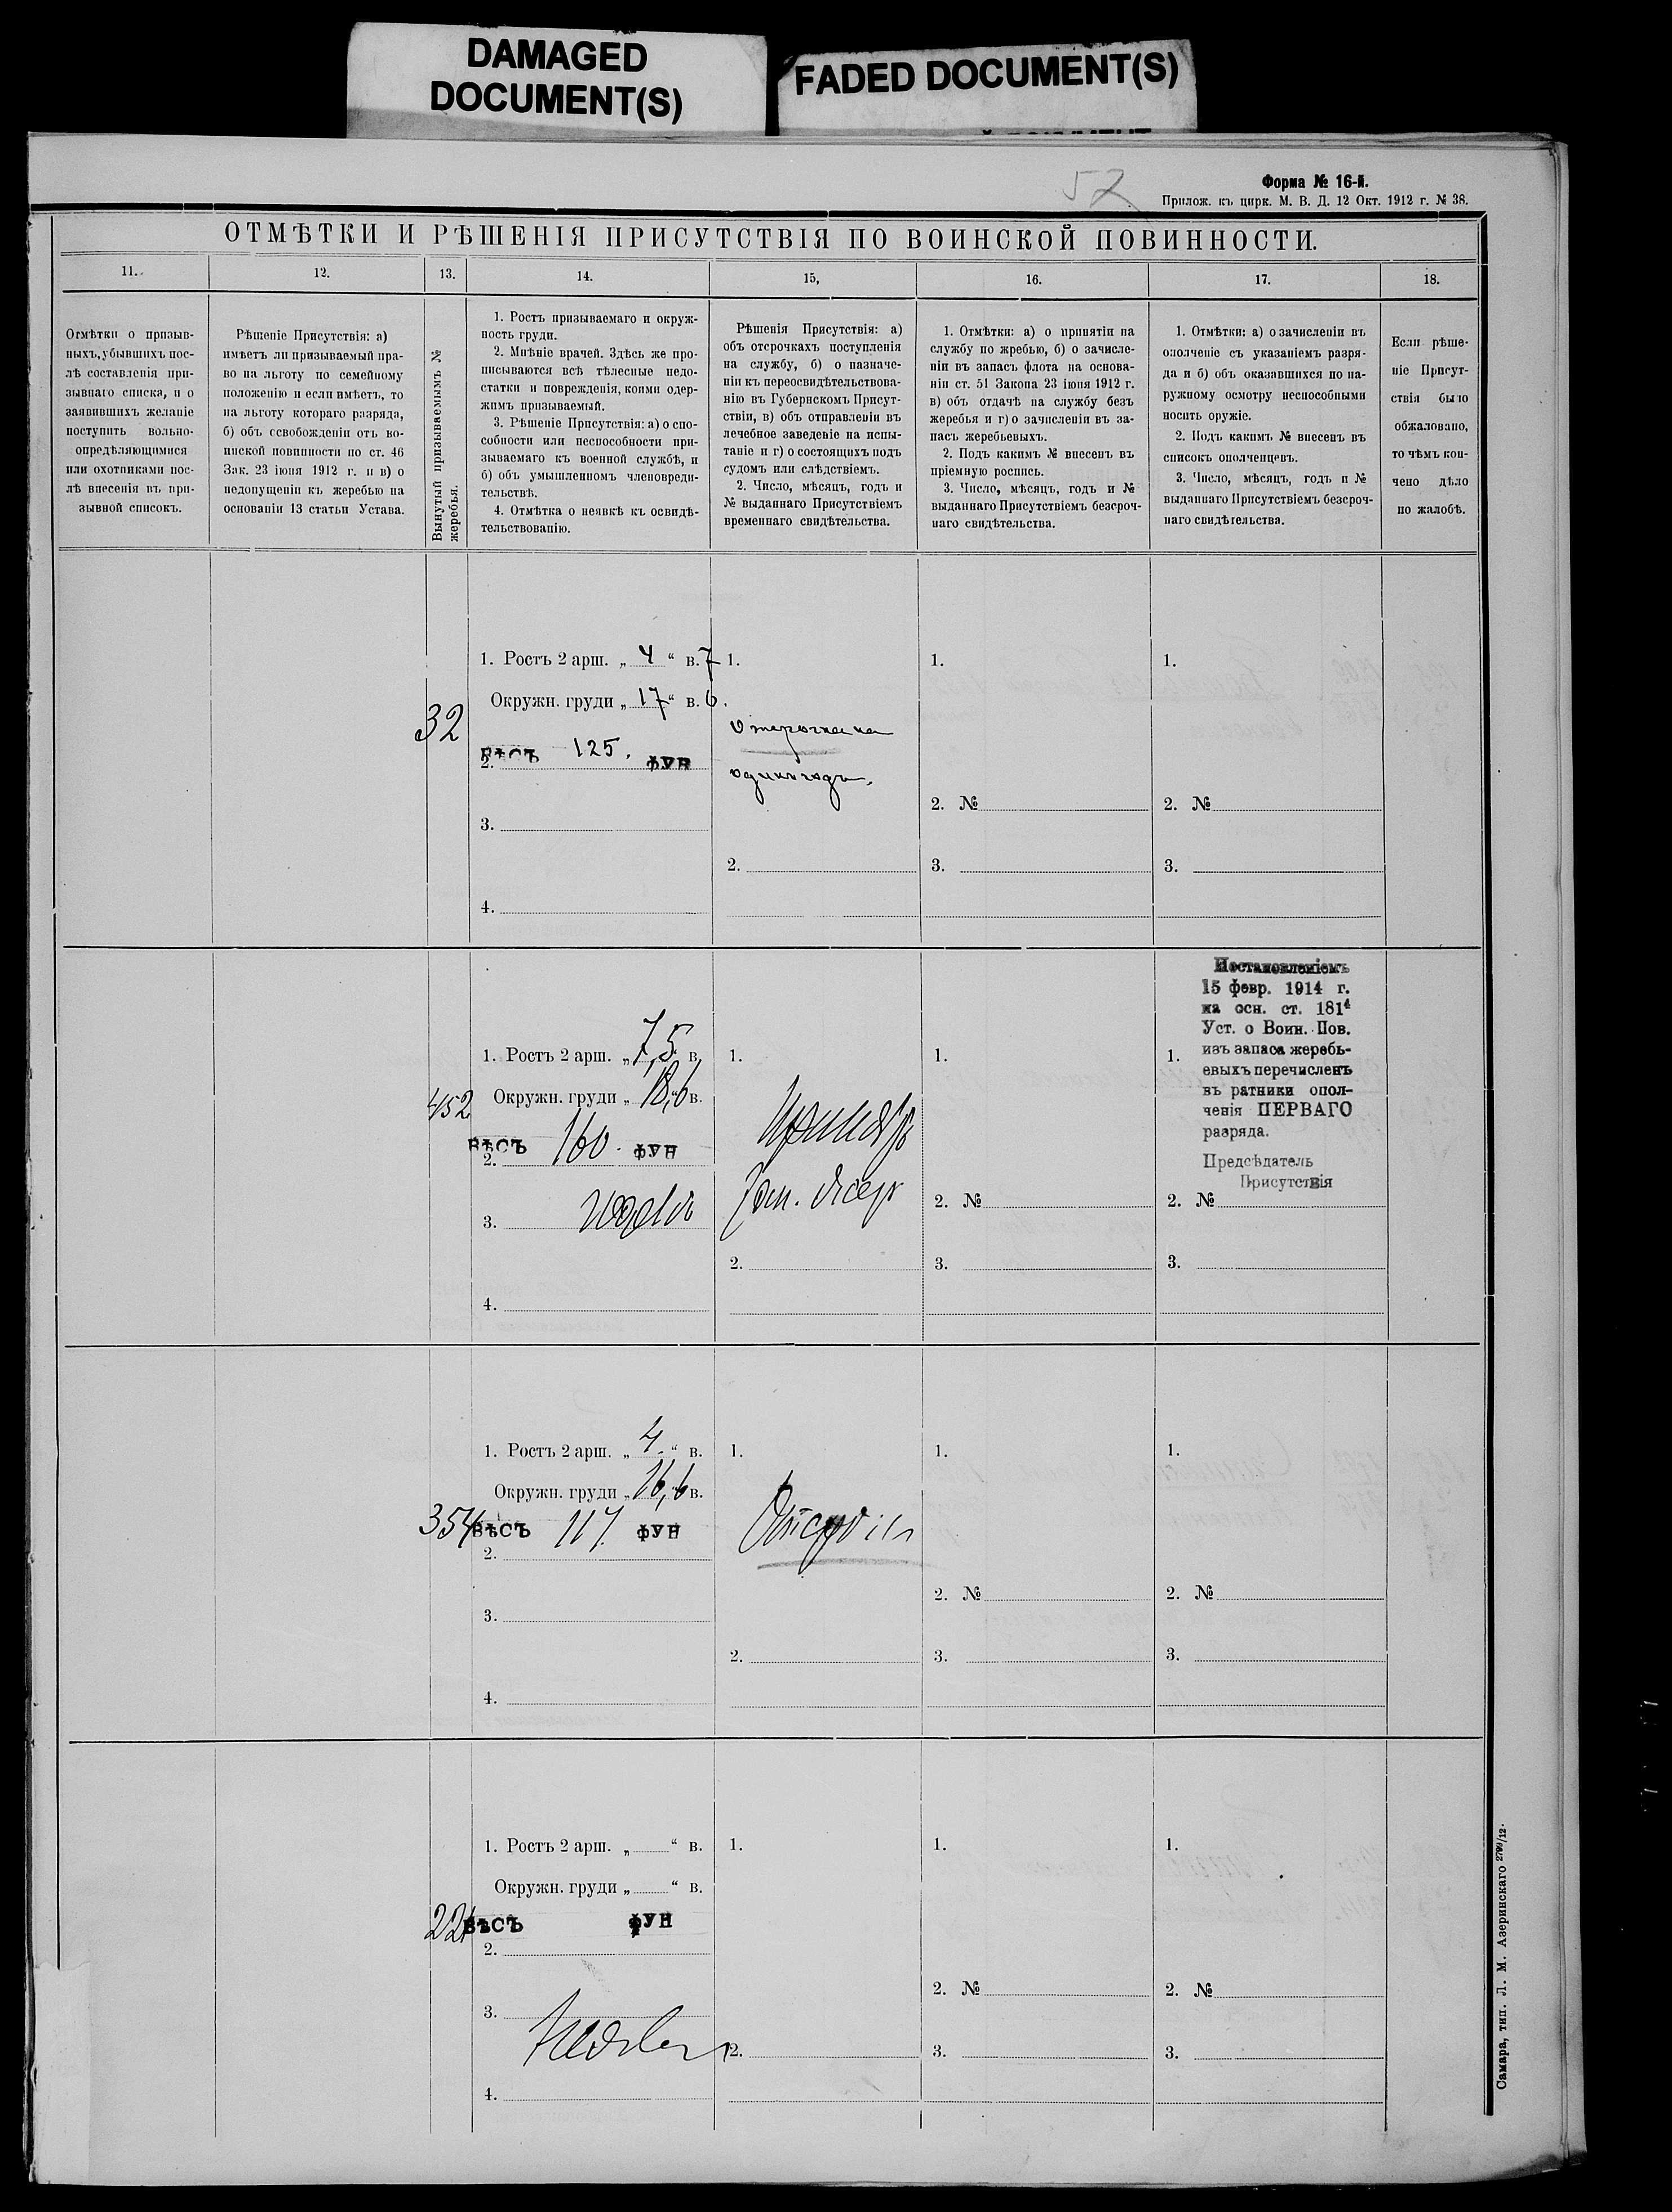 DAMAGED
DOCUMENT(S)
FADED DOCUMENT(S)
57
Форма № 16-й.
Прилож. къ цирк. М. В. Д. 12 Окт. 1912 г. № 38.
ОТМѢТКИ И РѢШЕНІЯ ПРИСУТСТВІЯ ПО ВОИНСКОЙ ПОВИННОСТИ.
11.
12.
13.
14.
15,
16.
17.
18.
Отмѣтки о призыв-
ныхъ, убывшихъ пос-
лѣ составленія при-
зывнаго списка, и о
заявившихъ желаніе
поступить вольно-
опредѣляющимися
или охотниками пос-
лѣ внесенія въ при-
зывной списокъ.
Рѣшеніе Присутствія: а)
имѣетъ ли призываемый пра-
во на льготу по семейному
положенію и если имѣетъ, то
на льготу котораго разряда,
б) объ освобожденіи отъ во-
инской повинности по ст. 46
Зак. 23 іюня 1912 г. и в) о
недопущеніи къ жеребью на
основаніи 13 статьи Устава.
Вынутый призываемымъ №
жеребья.
1. Ростъ призываемаго и окруж-
ность груди.
2. Мнѣніе врачей. Здѣсь же про-
писываются всѣ тѣлесные недо-
статки и поврежденія, коими одер-
жимъ призываемый.
3. Рѣшеніе Присутствія: а) о спо-
собности или неспособности при-
зываемаго къ военной службѣ, и
б) объ умышленномъ членовреди-
тельствѣ.
4. Отмѣтка о неявкѣ къ освидѣ-
тельствованію.
Рѣшенія Присутствія: а)
объ отсрочкахъ поступленія
на службу, б) о назначе-
ніи къ переосвидѣтельствова-
нію въ Губернскомъ Присут-
ствіи, в) объ отправленіи въ
лечебное заведеніе на испы-
таніе и г) о состоящихъ подъ
судомъ или слѣдствіемъ.
2. Число, мѣсяцъ, годъ и
№ выданнаго Присутствіемъ
временнаго свидѣтельства.
1. Отмѣтки: а) о принятіи на
службу по жребью, б) о зачисле-
ніи въ запасъ флота на основа-
ніи ст. 51 Закона 23 іюня 1912 г.
в) объ отдачѣ на службу безъ
жеребья и г) о зачисленіи въ за-
пасъ жеребьевыхъ.
2. Подъ какимъ № внесенъ въ
пріемную роспись.
3. Число, мѣсяцъ, годъ и №
выданнаго Присутствіемъ безсроч-
наго свидѣтельства.
1. Отмѣтки: а) о зачисленіи въ
ополченіе съ указаніемъ разря-
да и б) объ оказавшихся по на-
ружному осмотру неспособными
носить оружіе.
2. Подъ какимъ № внесенъ въ
списокъ ополченцевъ.
3. Число, мѣсяцъ, годъ и №
выданнаго Присутствіемъ безсроч-
наго свидѣтельства.
Если рѣше-
ніе Присут-
ствія было
обжаловано,
то чѣмъ кон-
чено дѣло
по жалобѣ.
32
1. Ростъ 2 арш. „ 4 “ в. 7
Окружн. груди „ 17 “ в. 6.
вѣсъ 125. фун
2.
3.
4.
1.
Отсрочка на
одинъ годъ.
2.
1.
2. №
3.
1.
2. №
3.
452
1. Ростъ 2 арш. „ 7,5 в.
Окружн. груди „ 18,6 в.
вѣсъ 160. фун
2.
3. Годенъ
4.
1.
2.
1.
2. №
3.
Постановленіемъ
15 февр. 1914 г.
на осн. ст. 181⁴
Уст. о Воин. Пов.
изъ запаса жеребь-
евыхъ перечисленъ
въ ратники опол-
ченія ПЕРВАГО
разряда.
Предсѣдатель
Присутствія
1.
2. №
3.
354
1. Ростъ 2 арш. „ 4. “ в.
Окружн. груди „ 16,6 в.
вѣсъ 117. фун
2.
3.
4.
1.
2.
1.
2. №
3.
1.
2. №
3.
221
1. Ростъ 2 арш. „ “ в.
Окружн. груди „ “ в.
вѣсъ фун
2.
3.
4.
1.
2.
1.
2. №
3.
1.
2. №
3.
Самара, тип. Л. М. Азеринскаго 2799/12.